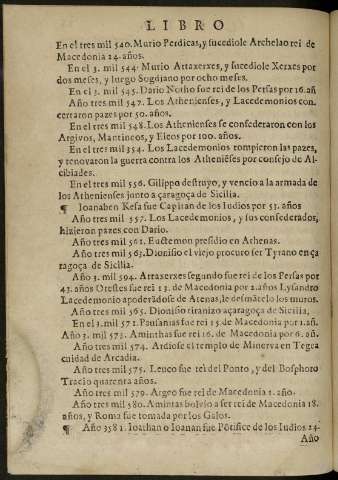 LIBRO
En el tres mil 540. Murio Perdicas, y sucediole Archelao rei de
Macedonia 24. años.
En el 3. mil 544. Murio Artaxerxes, y sucediole Xerxes por
dos meses, y luego Sogdiano por ocho meses.
En el 3. mil 545. Dario Notho fue rei de los Persas por 16. añ
Año tres mil 547. Los Athenienses, y Lacedemonios con
certaron pazes por 50. años.
En el tres mil 548. Los Athenienses se confederaron con los
Argivos, Mantineos, y Eleos por 100. años.
En el tres mil 354. Los Lacedemonios rompieron las pazes,
y renovaron la guerra contra los Atheniẽses por consejo de Al-
cibiades.
En el tres mil 556. Gilippo destruyo, y vencio a la armada de
los Athenienses junto a çaragoça de Sicilia.
¶ Ioanaben Kesa fue Capitan de los Iudios por 53. años
Año tres mil 557. Los Lacedemonios, y sus confederados,
hizieron pazes con Dario.
Año tres mil 561. Euctemon presidio en Athenas.
Año tres mil 563. Dionisio el viejo procuro ser Tyrano en ça
ragoça de Sicilia.
Año 3. mil 504. Artaxerxes segundo fue rei de los Persas por
43. años Orestes fue rei 13. de Macedonia por 2. años Lysandro
Lacedemonio apoderãdose de Atenas, le desmãtelo los muros.
Año tres mil 565. Dionisio tiranizo açaragoça de Sicilia,
En el 3. mil 571. Pausanias fue rei 15. de Macedonia por 1. añ.
Año 3. mil 573. Aminthas fue rei 16. de Macedonia por 6. añ.
Año tres mil 574. Ardiose el templo de Minerva en Tegea
cuidad de Arcadia.
Año tres mil 575. Leuco fue rei del Ponto, y del Bosphoro
Tracio quarenta años.
Año tres mil 579. Argeo fue rei de Macedonia 1. año.
Año tres mil 580. Amintas bolvio a ser rei de Macedonia 18.
años, y Roma fue tomada por los Galos.
¶ Año 3581. Ioathan o Ioanan fue Põtifice de los Iudios 24.
Año